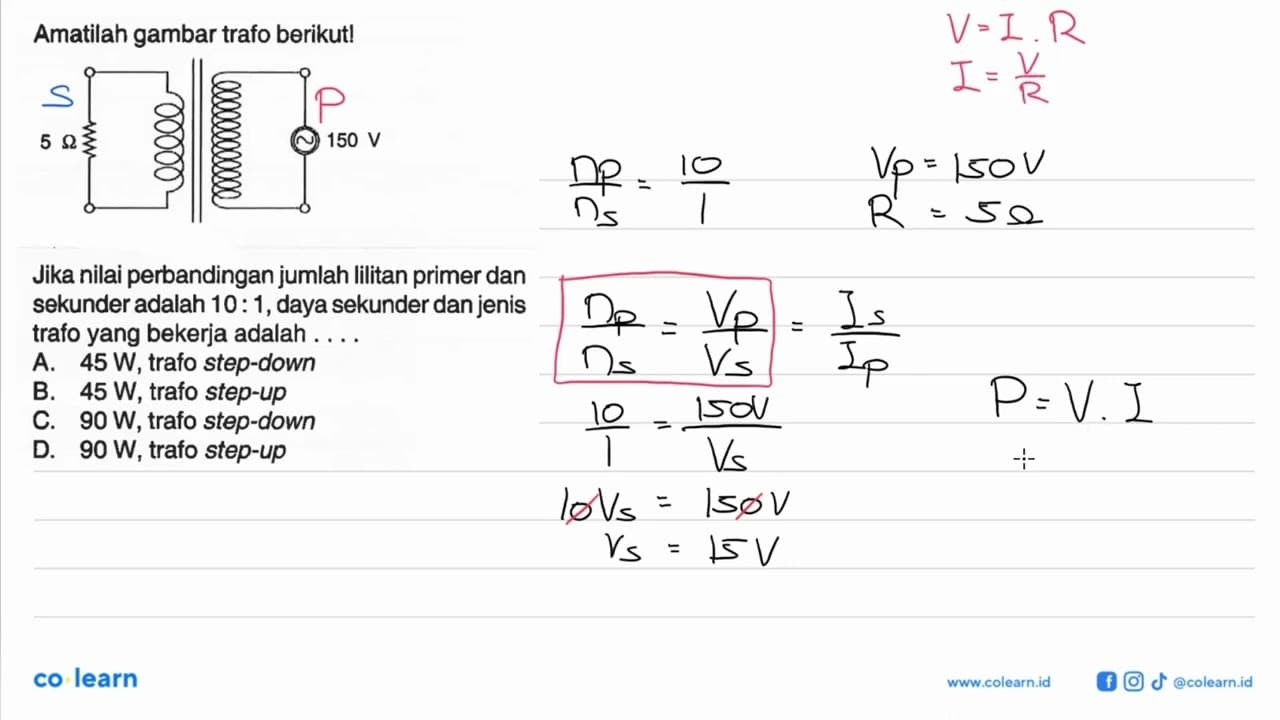 Amatilah gambar trafo berikut!
S
5 Ω
P
150 V
Jika nilai perbandingan jumlah lilitan primer dan
sekunder adalah 10 : 1, daya sekunder dan jenis
trafo yang bekerja adalah . . . .
A. 45 W, trafo step-down
B. 45 W, trafo step-up
C. 90 W, trafo step-down
D. 90 W, trafo step-up
V = I . R
I = V/R
np/ns = 10/1
Vp = 150V
R = 5Ω
np/ns = Vp/Vs = Is/Ip
10/1 = 150V/Vs
10Vs = 150V
Vs = 15V
P = V . I
co learn
www.colearn.id
@colearn.id